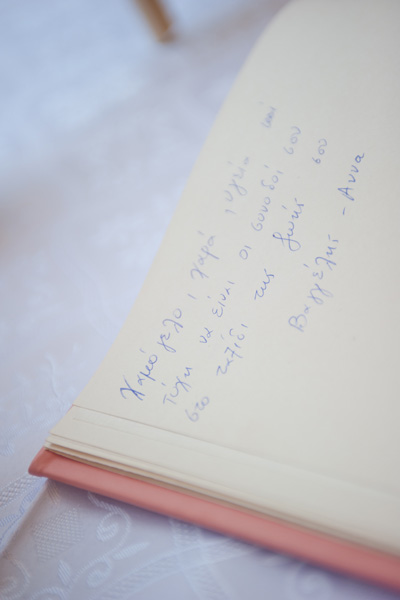 Χαμόγελο, χαρά, υγεία και
τύχη να είναι οι συνοδοί σου
στο ταξίδι της ζωής σου
Βαγγέλης - Άννα